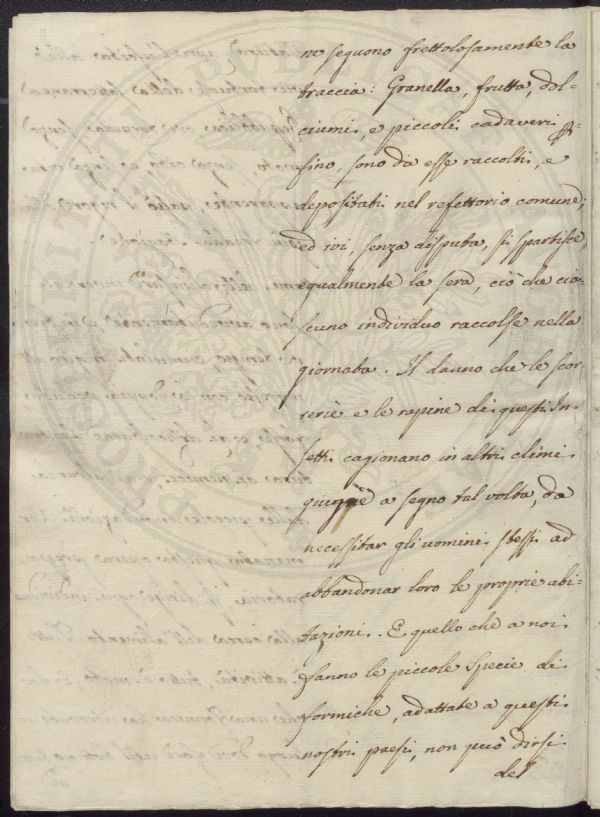 ne seguono frettolosamente la
traccia: Granella, frutta, dol-
ciumi, e piccoli cadaveri per-
fino, sono da esse raccolti, e
depositati nel refettorio comune;
ed ivi, senza disputa, si spartisce
egualmente la sera, ciò che cia-
scuno individuo raccolse nella
giornata. Il danno che le scor-
rerie e le rapine di questi In-
setti cagionano in altri climi
giugne a segno tal volta, da
necessitar gli uomini stessi ad
abbandonar loro le proprie abi-
tazioni. E quello che a noi
fanno le piccole specie di
formiche, adattate a questi
nostri paesi, non può dirsi
del